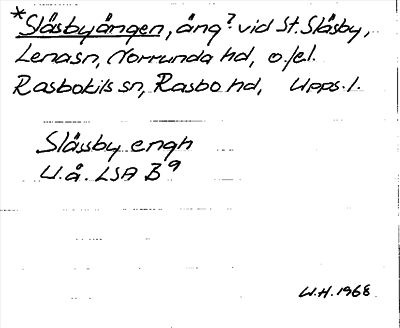 *Slåsbyången, äng? vid St. Slåsby,
Lenasn, Norrunda hd, o./el.
Rasbokils sn, Rasbo hd, Upps. l.
Slåssby engh
U.å. LSA B9
W.H. 1968